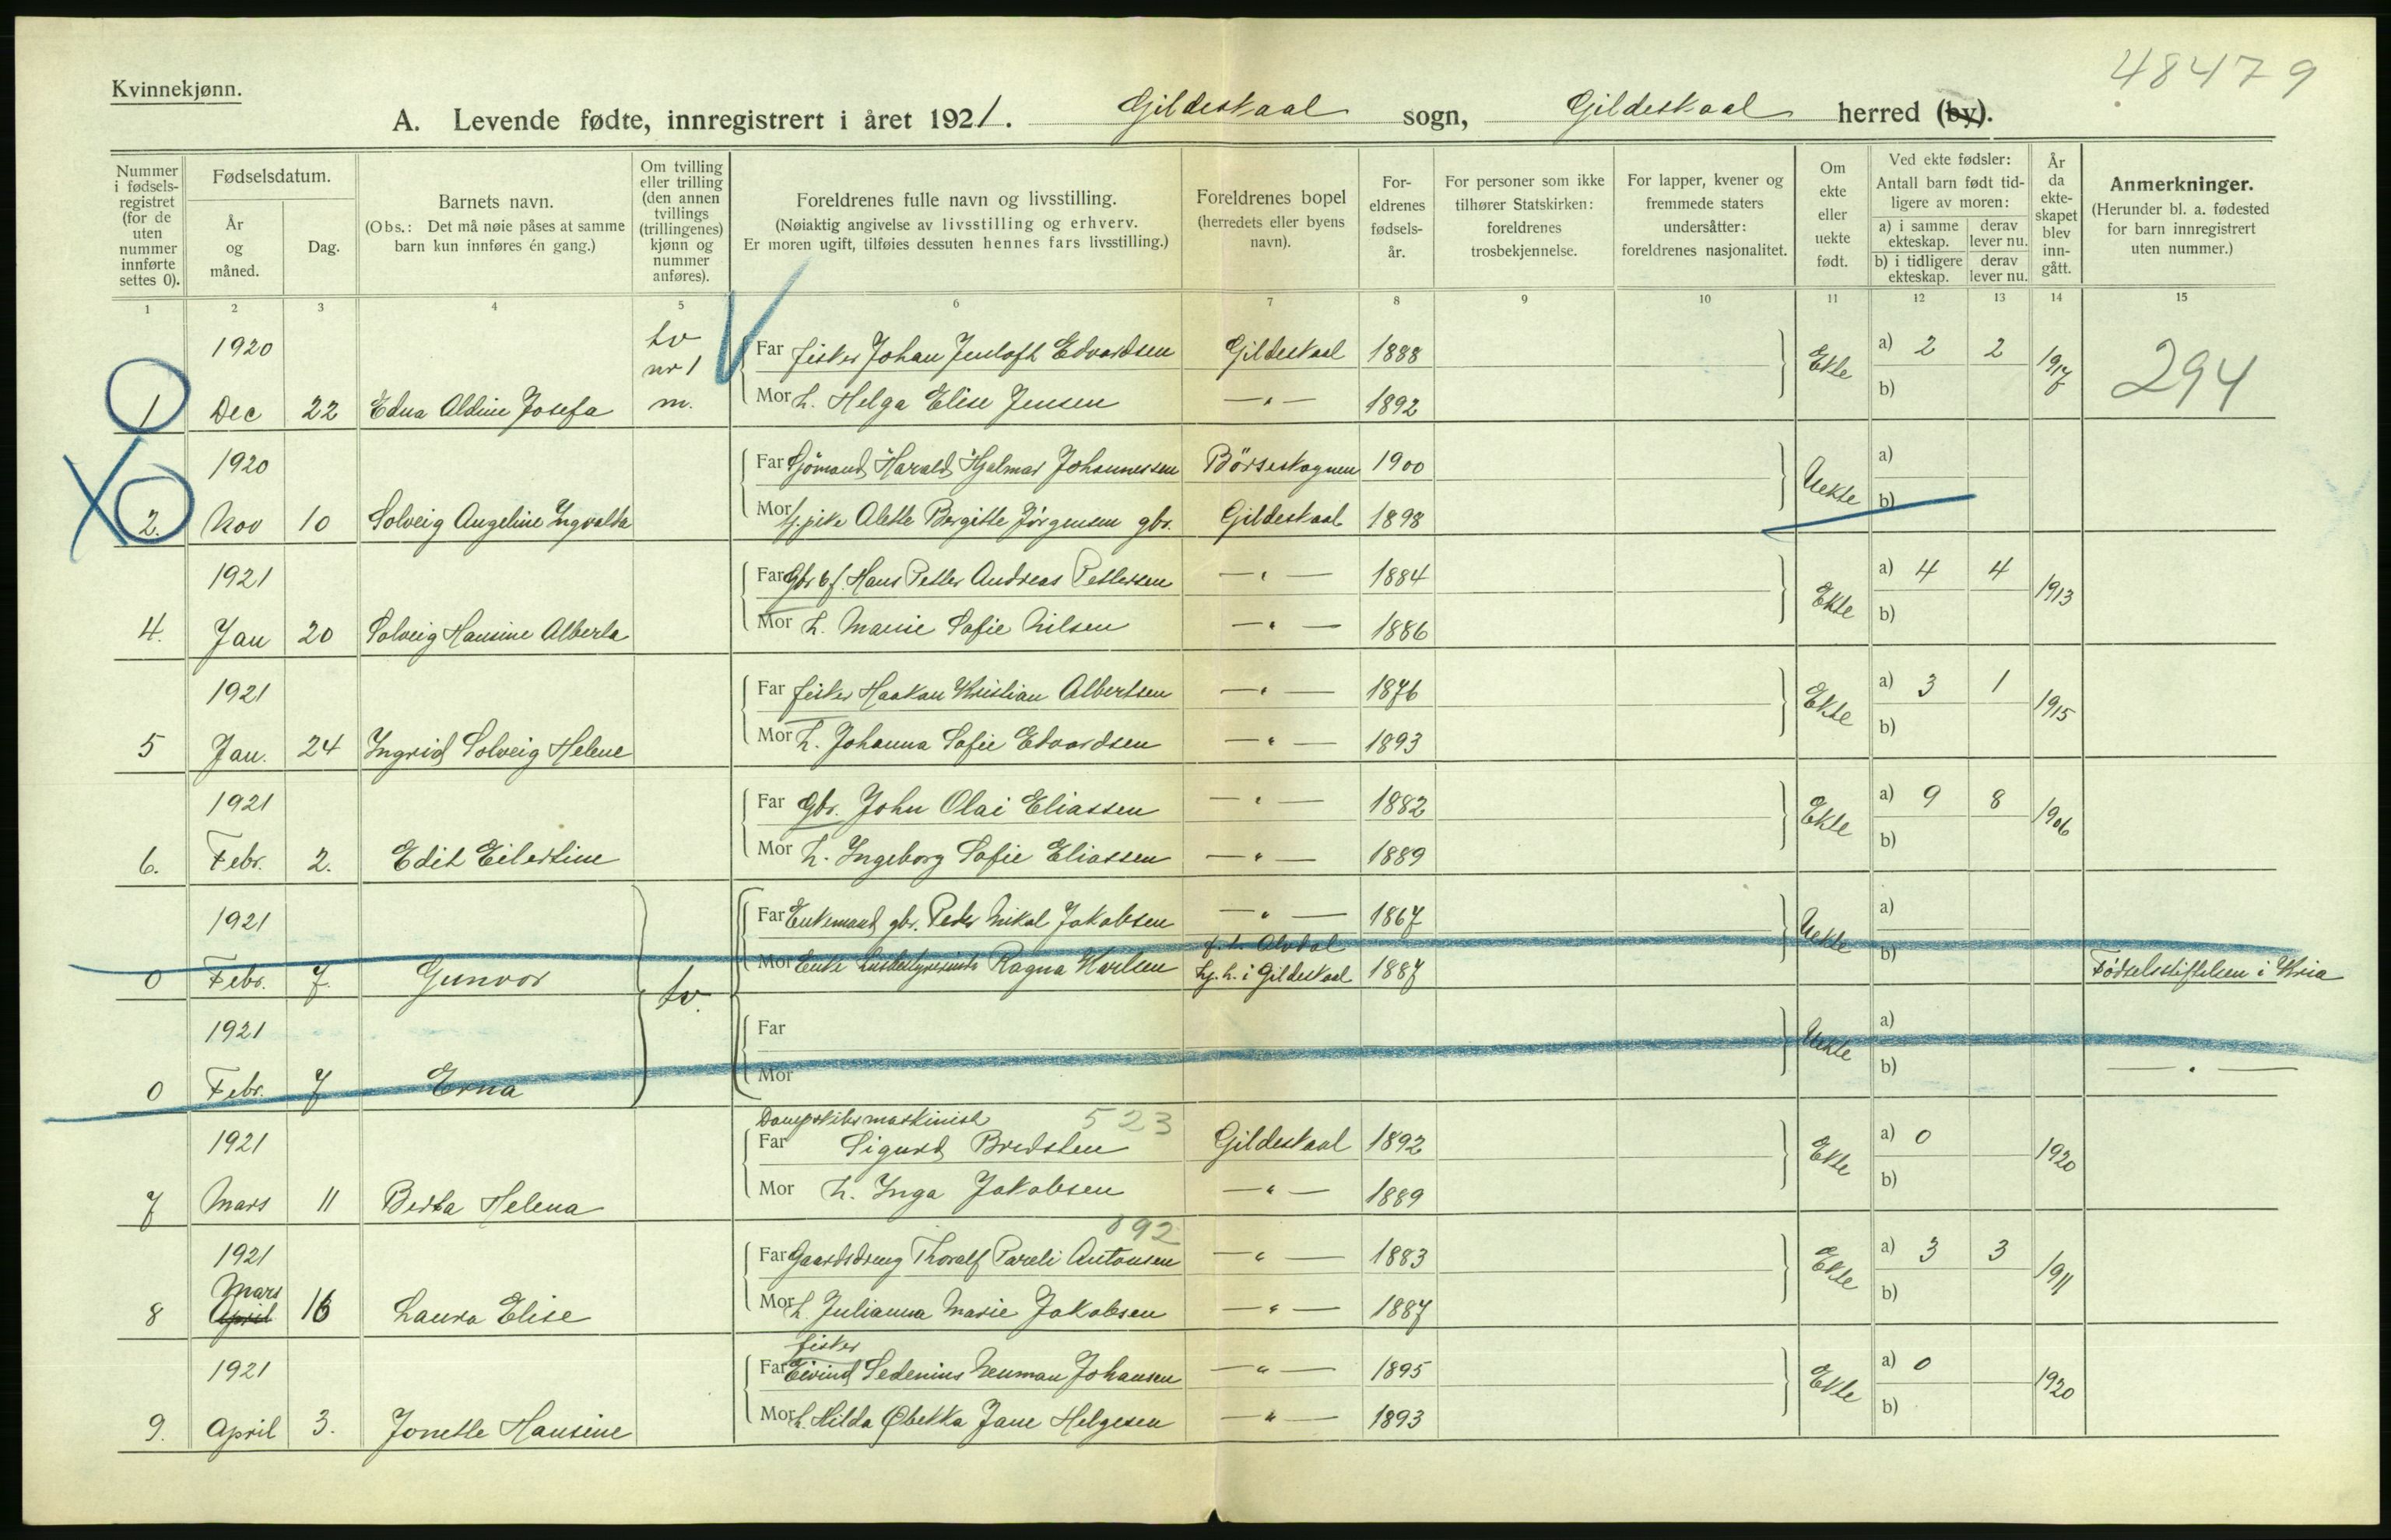 48479
Kvinnekjønn.
A. Levende fødte, innregistrert i året 1921. Gildeskaal sogn, Gildeskaal herred (by).
Nummer i fødselsregistret (for de uten nummer innførte settes 0).
Fødselsdatum.
År og måned.
Dag.
Barnets navn.
(Obs.: Det må nøie påses at samme barn kun innføres én gang.)
Om tvilling eller trilling (den annen tvillings (trillingenes) kjønn og nummer anføres).
Foreldrenes fulle navn og livsstilling.
(Nøiaktig angivelse av livsstilling og erhverv.
Er moren ugift, tilføies dessuten hennes fars livsstilling.)
Foreldrenes bopel (herredets eller byens navn).
Foreldrenes fødselsår.
For personer som ikke tilhører Statskirken: foreldrenes trosbekjennelse.
For lapper, kvener og fremmede staters undersåtter: foreldrenes nasjonalitet.
Om ekte eller uekte født.
Ved ekte fødsler: Antall barn født tidligere av moren:
a) i samme ekteskap. derav lever nu.
b) i tidligere ekteskap. derav lever nu.
År da ekteskapet blev inngått.
Anmerkninger.
(Herunder bl. a. fødested for barn innregistrert uten nummer.)
1 2 3 4 5 6 7 8 9 10 11 12 13 14 15
1920 tv nr 1 Far fisker Johan Edvardsen Gildeskaal 1888 Ekte a) 2 2 1917 294
1 Dec 22 Edna Aldine Josefa m. Mor h. Helga Elise Jensen —"— 1892 b)
1920 Far Sjömand Harald Hjalmar Johannessen Börseskognen 1900 Uekte a)
2. Nov 10 Solveig Angeline Ingvalda Mor Alette Bergitte Jörgensen gbr. Gildeskaal 1898 b)
1921 Far Gbr. & f. Hans Petter Andreas Pettersen —"— 1884 Ekte a) 4 4 1913
4. Jan 20 Solveig Hansine Alberta Mor h. Marie Sofie Nilsen —"— 1886 b)
1921 Far fisker Haakon Kristian Albertsen —"— 1876 Ekte a) 3 1 1915
5 Jan. 24 Ingrid Solveig Helene Mor h. Johanna Sofie Edvardsen —"— 1893 b)
1921 Far Gbr. John Olai Eliassen —"— 1882 Ekte a) 9 8 1906
6. Febr. 2. Edit Eilertine Mor h. Ingeborg Sofie Eliassen —"— 1889 b)
1921 Far Enkemand gbr. Peder Mikal Jakobsen —"— 1867 Uekte a)
0 Febr. 7. Gunvor tv. Mor Enke Ragna Karlsen f. h. Alvdal hj. h. i Gildeskaal 1887 b) Födselsstiftelsen i Kria
1921 Far Uekte a)
0 Febr. 7 Erna Mor b) —"—
Dampskibsmaskinist 523
1921 Far Sigurd Bredsten Gildeskaal 1892 Ekte a) 0 1920
7 Mars 11 Berta Helena Mor h. Inga Jakobsen —"— 1889 b)
892
1921 Far Gaardsdreng Thoralf Pareli Antonsen —"— 1883 Ekte a) 3 3 1911
Mars
8 April 16 Laura Elise Mor h. Julianna Marie Jakobsen —"— 1887 b)
fisker
1921 Far Eivind Sedenius Neuman Johansen —"— 1895 Ekte a) 0 1920
9. April 3. Jonette Hansine Mor h. Hilda Obekka Jane Helgesen —"— 1893 b)